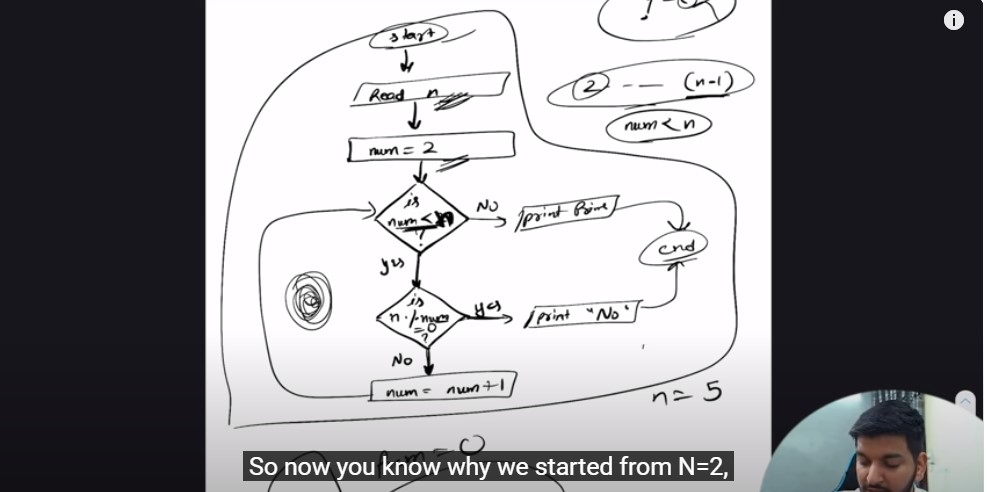 start
Read n
num = 2
2 --- (n-1)
num < n
is
num <
?
NO
print Prime
end
yes
is
n % num
= 0
?
yes
print "No"
No
num = num+1
n = 5
= 0
So now you know why we started from N=2,